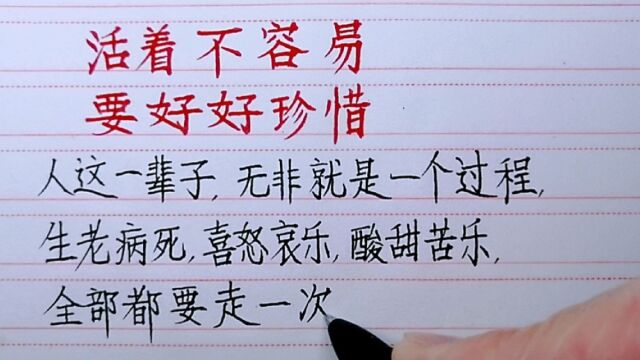 活着不容易
要好好珍惜
人这一辈子,无非就是一个过程,
生老病死,喜怒哀乐,酸甜苦乐,
全部都要走一次